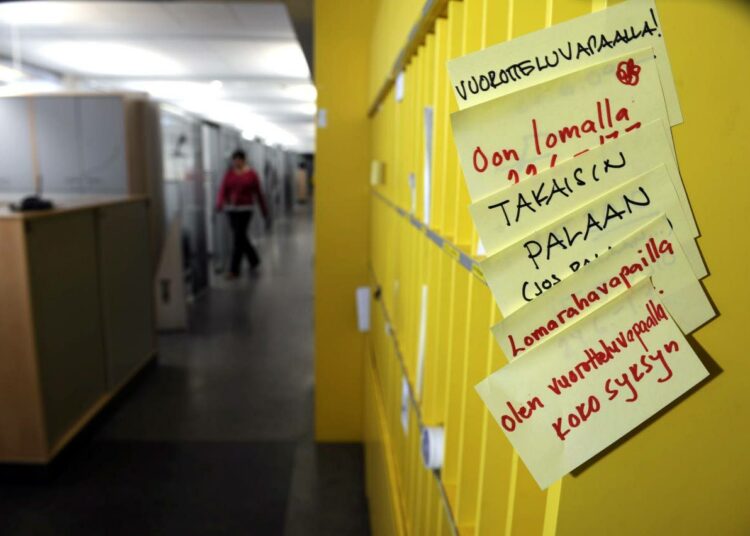 VUOROTTELUVAPAALLA!
Oon lomalla
TAKAISIN
PALAAN
(JOS
Lomarahavapailla
Olen vuorotteluvapaalla!
KOKO SYKSYN